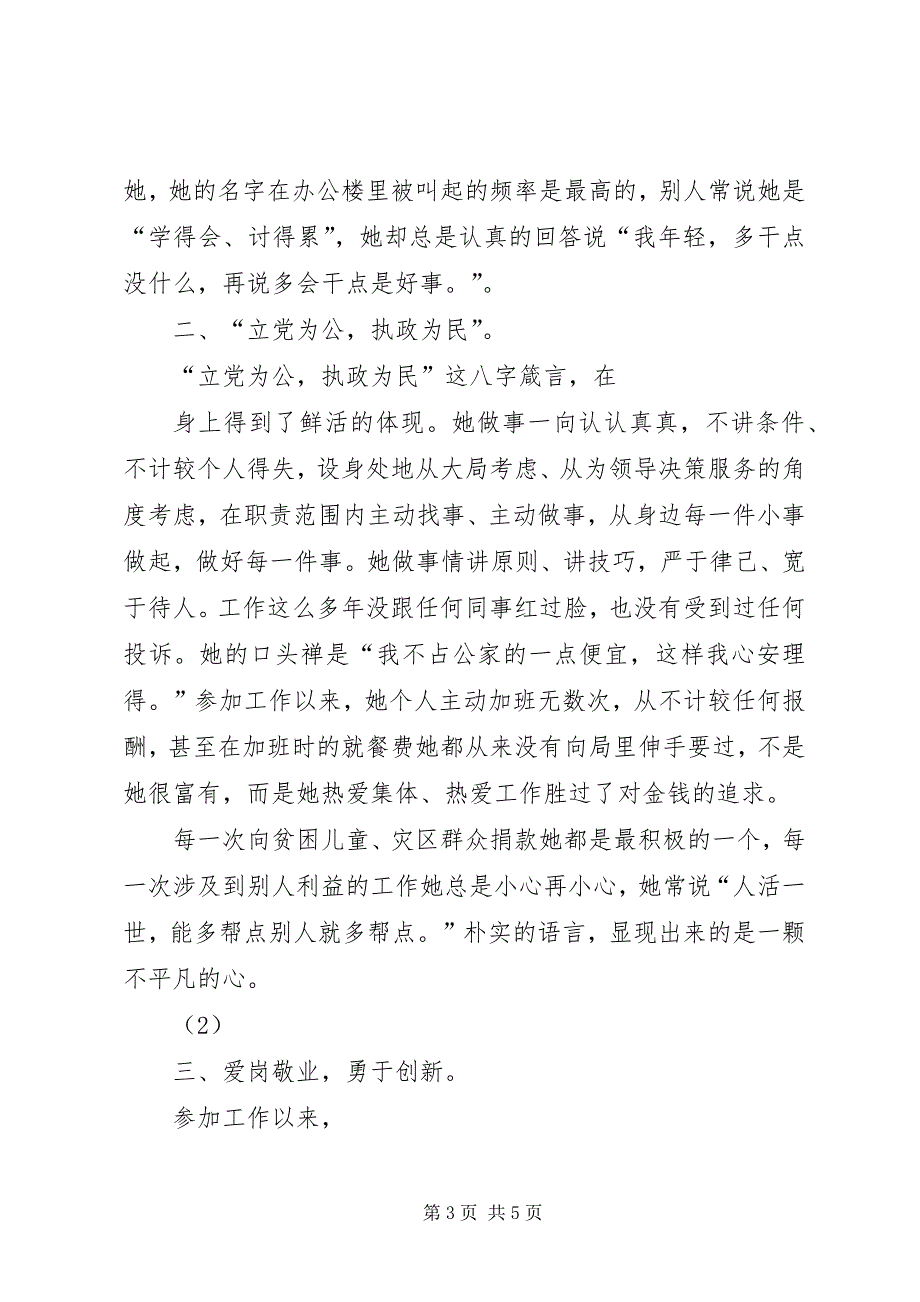 她，她的名字在办公楼里被叫起的频率是最高的，别人常说她是
“学得会、讨得累”，她却总是认真的回答说“我年轻，多干点
没什么，再说多会干点是好事。”。
二、“立党为公，执政为民”。
“立党为公，执政为民”这八字箴言，在
身上得到了鲜活的体现。她做事一向认认真真，不讲条件、
不计较个人得失，设身处地从大局考虑、从为领导决策服务的角
度考虑，在职责范围内主动找事、主动做事，从身边每一件小事
做起，做好每一件事。她做事情讲原则、讲技巧，严于律己、宽
于待人。工作这么多年没跟任何同事红过脸，也没有受到过任何
投诉。她的口头禅是“我不占公家的一点便宜，这样我心安理
得。”参加工作以来，她个人主动加班无数次，从不计较任何报
酬，甚至在加班时的就餐费她都从来没有向局里伸手要过，不是
她很富有，而是她热爱集体、热爱工作胜过了对金钱的追求。
每一次向贫困儿童、灾区群众捐款她都是最积极的一个，每
一次涉及到别人利益的工作她总是小心再小心，她常说“人活一
世，能多帮点别人就多帮点。”朴实的语言，显现出来的是一颗
不平凡的心。
（2）
三、爱岗敬业，勇于创新。
参加工作以来，
第 3 页 共 5 页